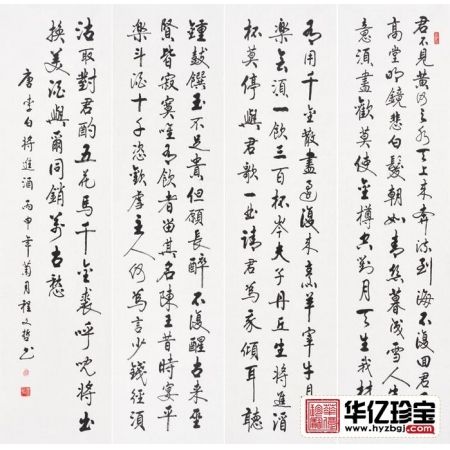 君不見黃河之水天上來奔流到海不復回君不
高堂明鏡悲白髮朝如青絲暮成雪人生
意須盡歡莫使金樽空對月天生我材
有用千金散盡還復來烹羊宰牛且
樂會須一飲三百杯岑夫子丹丘生將進酒
杯莫停與君歌一曲請君為我傾耳聽
鍾鼓饌玉不足貴但願長醉不復醒古來聖
賢皆寂寞唯有飲者留其名陳王昔時宴平
樂斗酒十千恣歡謔主人何為言少錢徑須
沽取對君酌五花馬千金裘呼兒將出
換美酒與爾同銷萬古愁
唐李白將進酒丙申年菊月程文哲書
华亿珍宝
www.hyzbgj.com